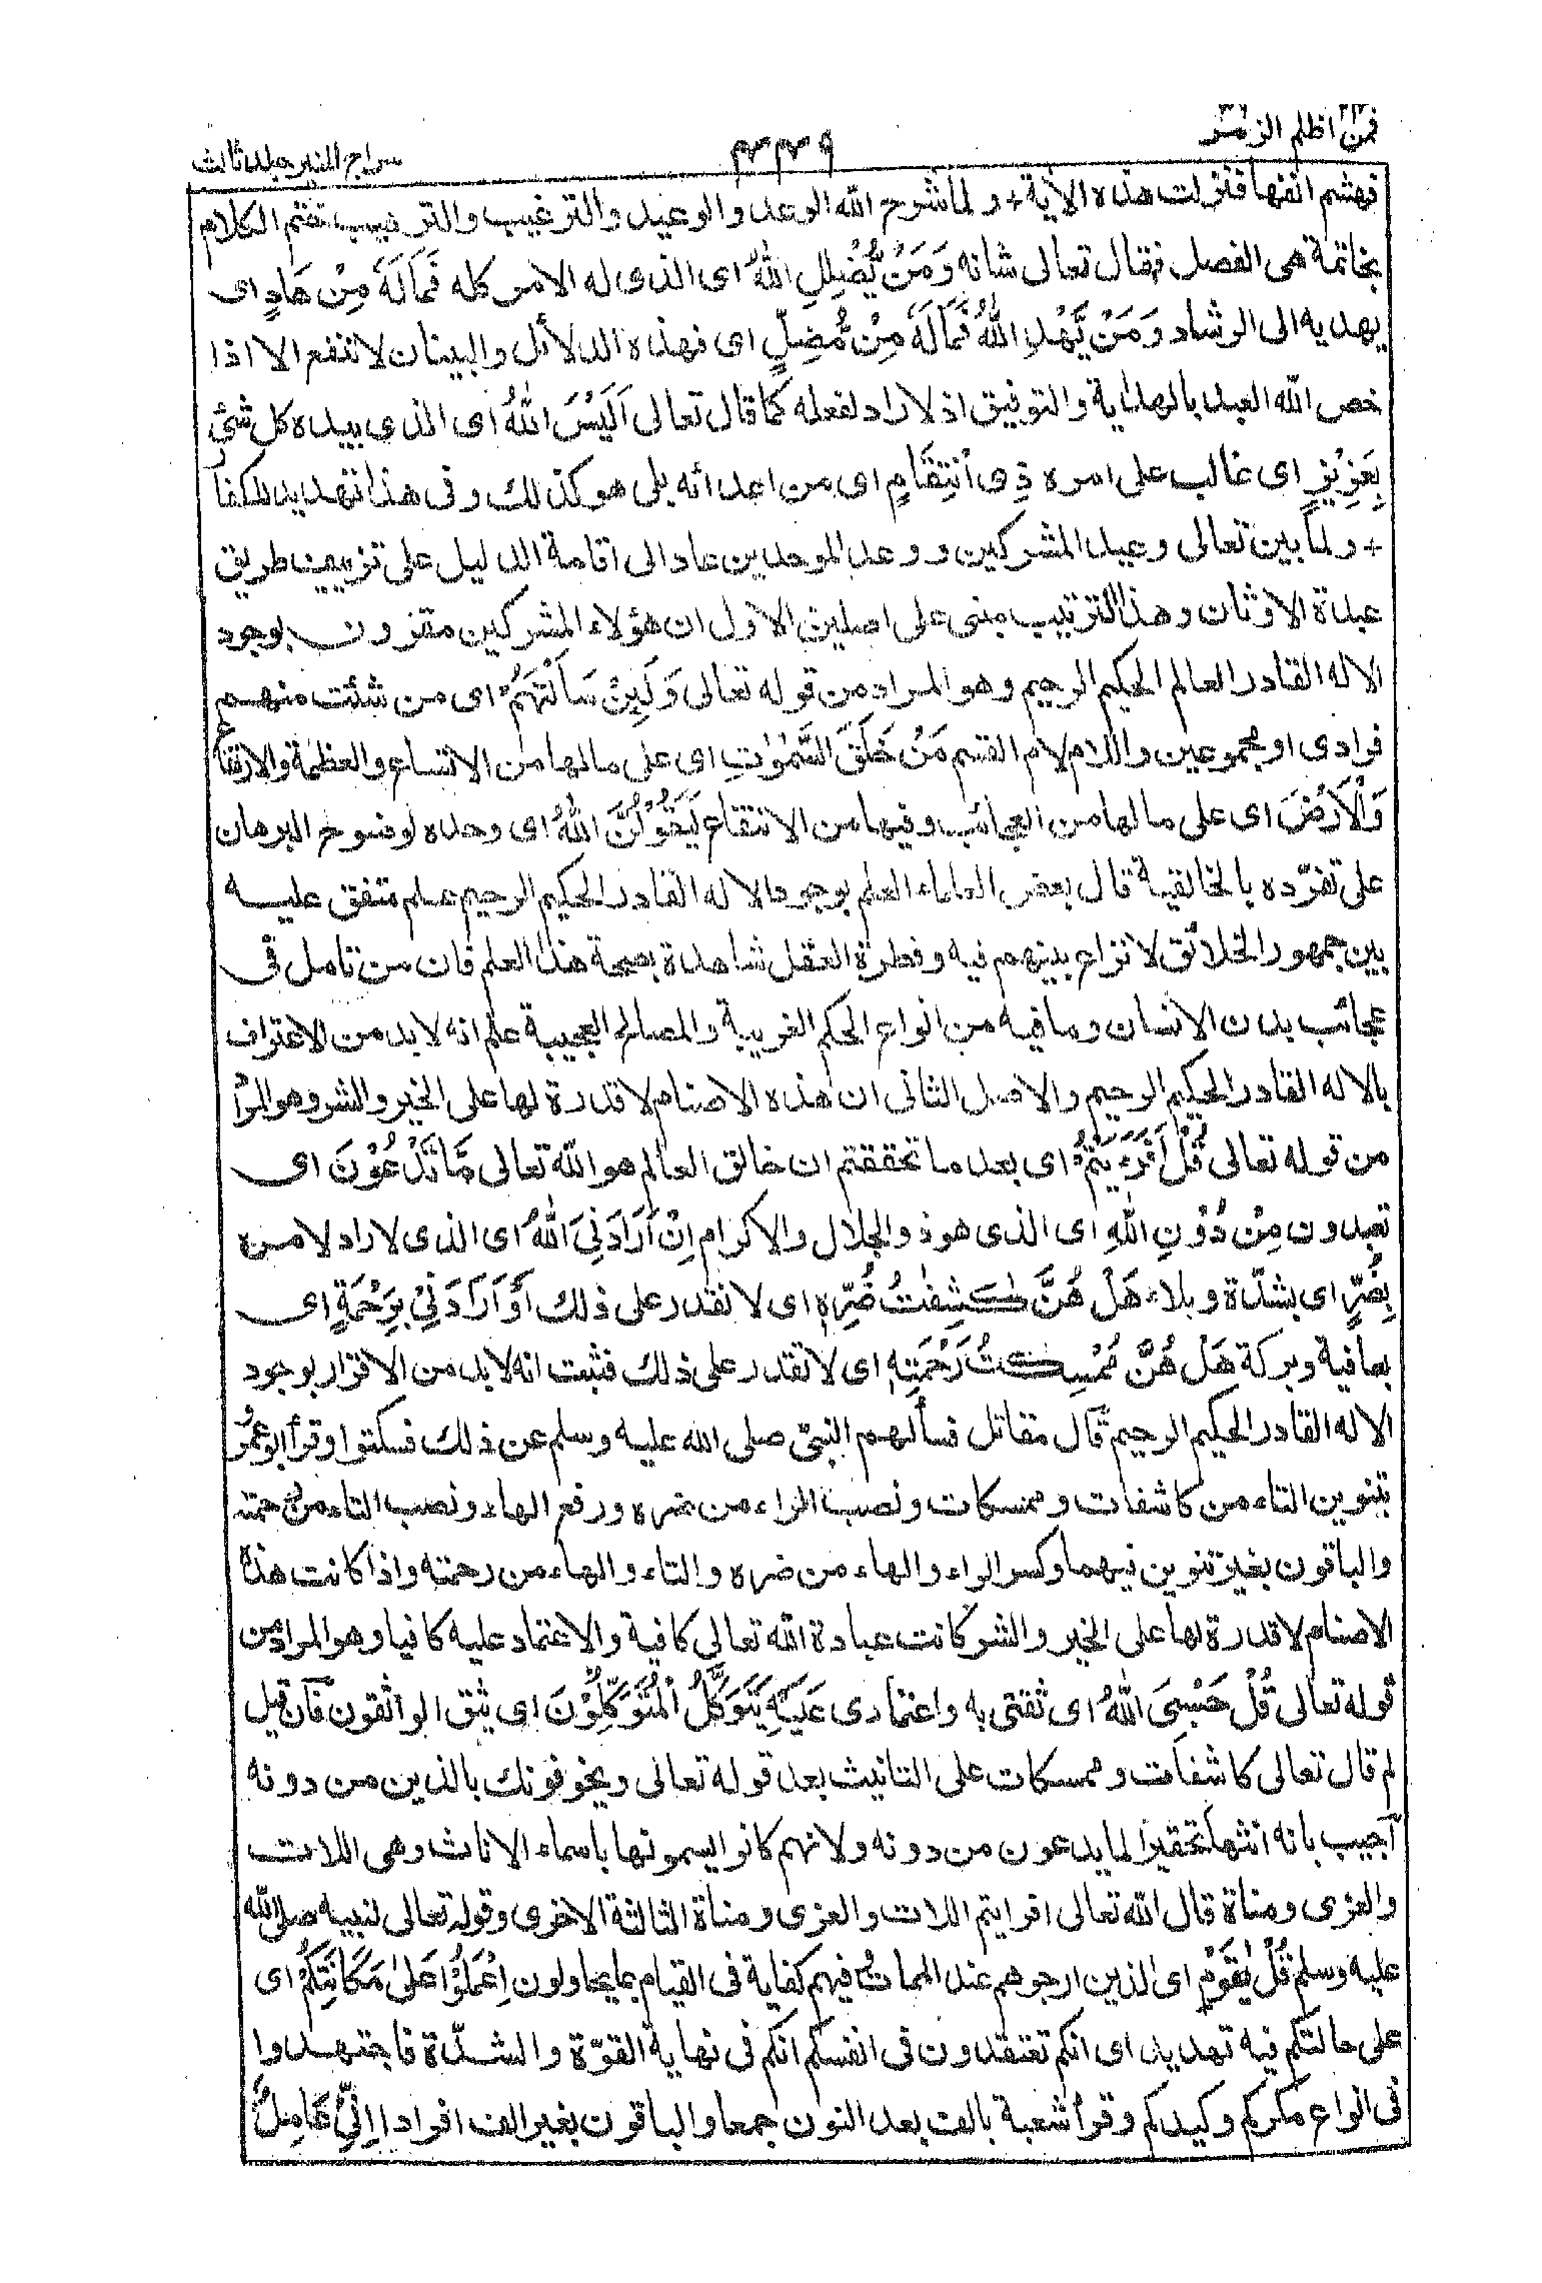 فمن اظلم الزمر
٤٣٩
سراج المنير جلد ثالث
فهشم انفها فنزلت هذه الاية + ولما شرح الله الوعد والوعيد والترغيب والترهيب ختم الكلام
بخاتمة هى الفصل فقال تعالى شانه وَمَنْ يُّضْلِلِ اللهُ اى الذى له الامر كله فَمَا لَهٗ مِنْ هَادٍ اى
يهديه الى الرشاد وَمَنْ يَّهْدِ اللهُ فَمَا لَهٗ مِنْ مُّضِلٍّ اى فهذه الدلائل والبينات لا تنفع الا اذا
خص الله العبد بالهداية والتوفيق اذ لا راد لفعله كما قال تعالى اَلَيْسَ اللهُ اى الذى بيده كل شئ
بِعَزِيْزٍ اى غالب على امره ذِى انْتِقَامٍ اى من اعدائه بلى هو كذلك وفى هذا تهديد للكفار
+ ولما بين تعالى وعيد المشركين ووعد الموحدين عاد الى اقامة الدليل على تزييف طريق
عبدة الاوثان وهذا الترتيب مبنى على اصلين الاول ان هؤلاء المشركين مقرون بوجود
الاله القادر العالم الحكيم الرحيم وهو المراد من قوله تعالى وَلَئِنْ سَاَلْتَهُمْ اى من شئت منهم
فرادى او مجموعين واللام لام القسم مَنْ خَلَقَ السَّمٰوٰتِ اى على ما لها من الاتساع والعظمة والارتفاع
وَالْاَرْضَ اى على ما لها من العجائب وفيها من الانتفاع لَيَقُوْلُنَّ اللهُ اى وحده لوضوح البرهان
على تفرّده بالخالقية قال بعض العلماء العلم بوجود الاله القادر الحكيم الرحيم علم متفق عليه
بين جمهور الخلائق لا نزاع بينهم فيه وفطرة العقل شاهدة بصحة هذا العلم فان من تامل فى
عجائب بدن الانسان وما فيه من انواع الحكم الغريبة والمصالح العجيبة علم انه لابد من الاعتراف
بالاله القادر الحكيم الرحيم والاصل الثانى ان هذه الاصنام لا قدرة لها على الخير والشر وهو المراد
من قوله تعالى قُلْ اَفَرَءَيْتُمْ اى بعد ما تحققتم ان خالق العالم هو الله تعالى مَّا تَدْعُوْنَ اى
تعبدون مِنْ دُوْنِ اللهِ اى الذى هو ذو الجلال والاكرام اِنْ اَرَادَنِيَ اللهُ اى الذى لا راد لامره
بِضُرٍّ اى بشدّة وبلاء هَلْ هُنَّ كٰشِفٰتُ ضُرِّهٖ اى لا تقدر على ذلك اَوْ اَرَادَنِيْ بِرَحْمَةٍ اى
بعافية وبركة هَلْ هُنَّ مُمْسِكٰتُ رَحْمَتِهٖ اى لا تقدر على ذلك فثبت انه لابد من الاقرار بوجود
الاله القادر الحكيم الرحيم قال مقاتل فسألهم النبىّ صلى الله عليه وسلم عن ذلك فسكتوا وقرأ ابو عمرو
بتنوين التاء من كاشفات وممسكات ونصب الراء من ضره ورفع الهاء ونصب التاء من رحمته
والباقون بغير تنوين فيهما وكسر الراء والهاء من ضره والتاء والهاء من رحمته واذا كانت هذه
الاصنام لا قدرة لها على الخير والشر كانت عبادة الله تعالى كافية والاعتماد عليه كافيا وهو المراد من
قوله تعالى قُلْ حَسْبِيَ اللهُ اى ثقتى به واعتمادى عَلَيْهِ يَتَوَكَّلُ الْمُتَوَكِّلُوْنَ اى يثق الواثقون فان قيل
لم قال تعالى كاشفات وممسكات على التانيث بعد قوله تعالى ويخوفونك بالذين من دونه
اجيب بانه انثها تحقيرا لما يدعون من دونه ولانهم كانوا يسمونها باسماء الاناث وهى اللات
والعزى ومناة قال الله تعالى افرايتم اللات والعزى ومناة الثالثة الاخرى وقوله تعالى لنبيه صلى الله
عليه وسلم قُلْ يٰقَوْمِ اى الذين ارجوهم عند الممات فيهم كفاية فى القيام بما يحاولون اِعْمَلُوْا عَلٰى مَكَانَتِكُمْ اى
على حالتكم فيه تهديد اى انكم تعتقدون فى انفسكم انكم فى نهاية القوّة والشدّة فاجتهدوا
فى انواع مكركم وكيدكم وقرأ شعبة بالف بعد النون جمعا والباقون بغير الف افرادا اِنِّيْ عَامِلٌ